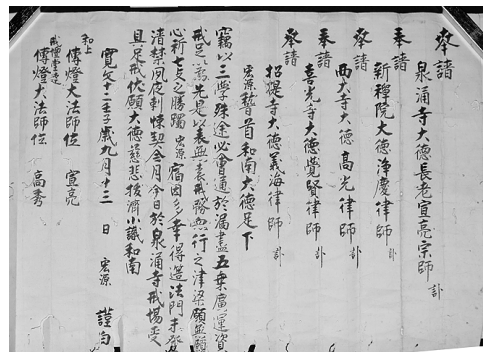 奉請
泉涌寺大德長老宣亮宗師
奉請
新禪院大德淨慶律師
西大寺大德高光律師
奉請
喜光寺大德覺賢律師
奉請
招提寺大德義海律師
宏源稽首和南大德足下
竊以三學殊途必會通於漏盡五乘廣運資
戒足以為先是以表無表戒務無行之津梁願無願
心祈七支之勝躅宏源宿因多幸得造法門未登
清禁夙夜剋悚契今月今日於泉涌寺戒場受
具足戒伏願大德慈悲拔濟小識和南
寛文十二壬子歳九月十三日 宏源 謹白
和上
傳燈大法師位 宣亮
傳燈大法師位 高秀